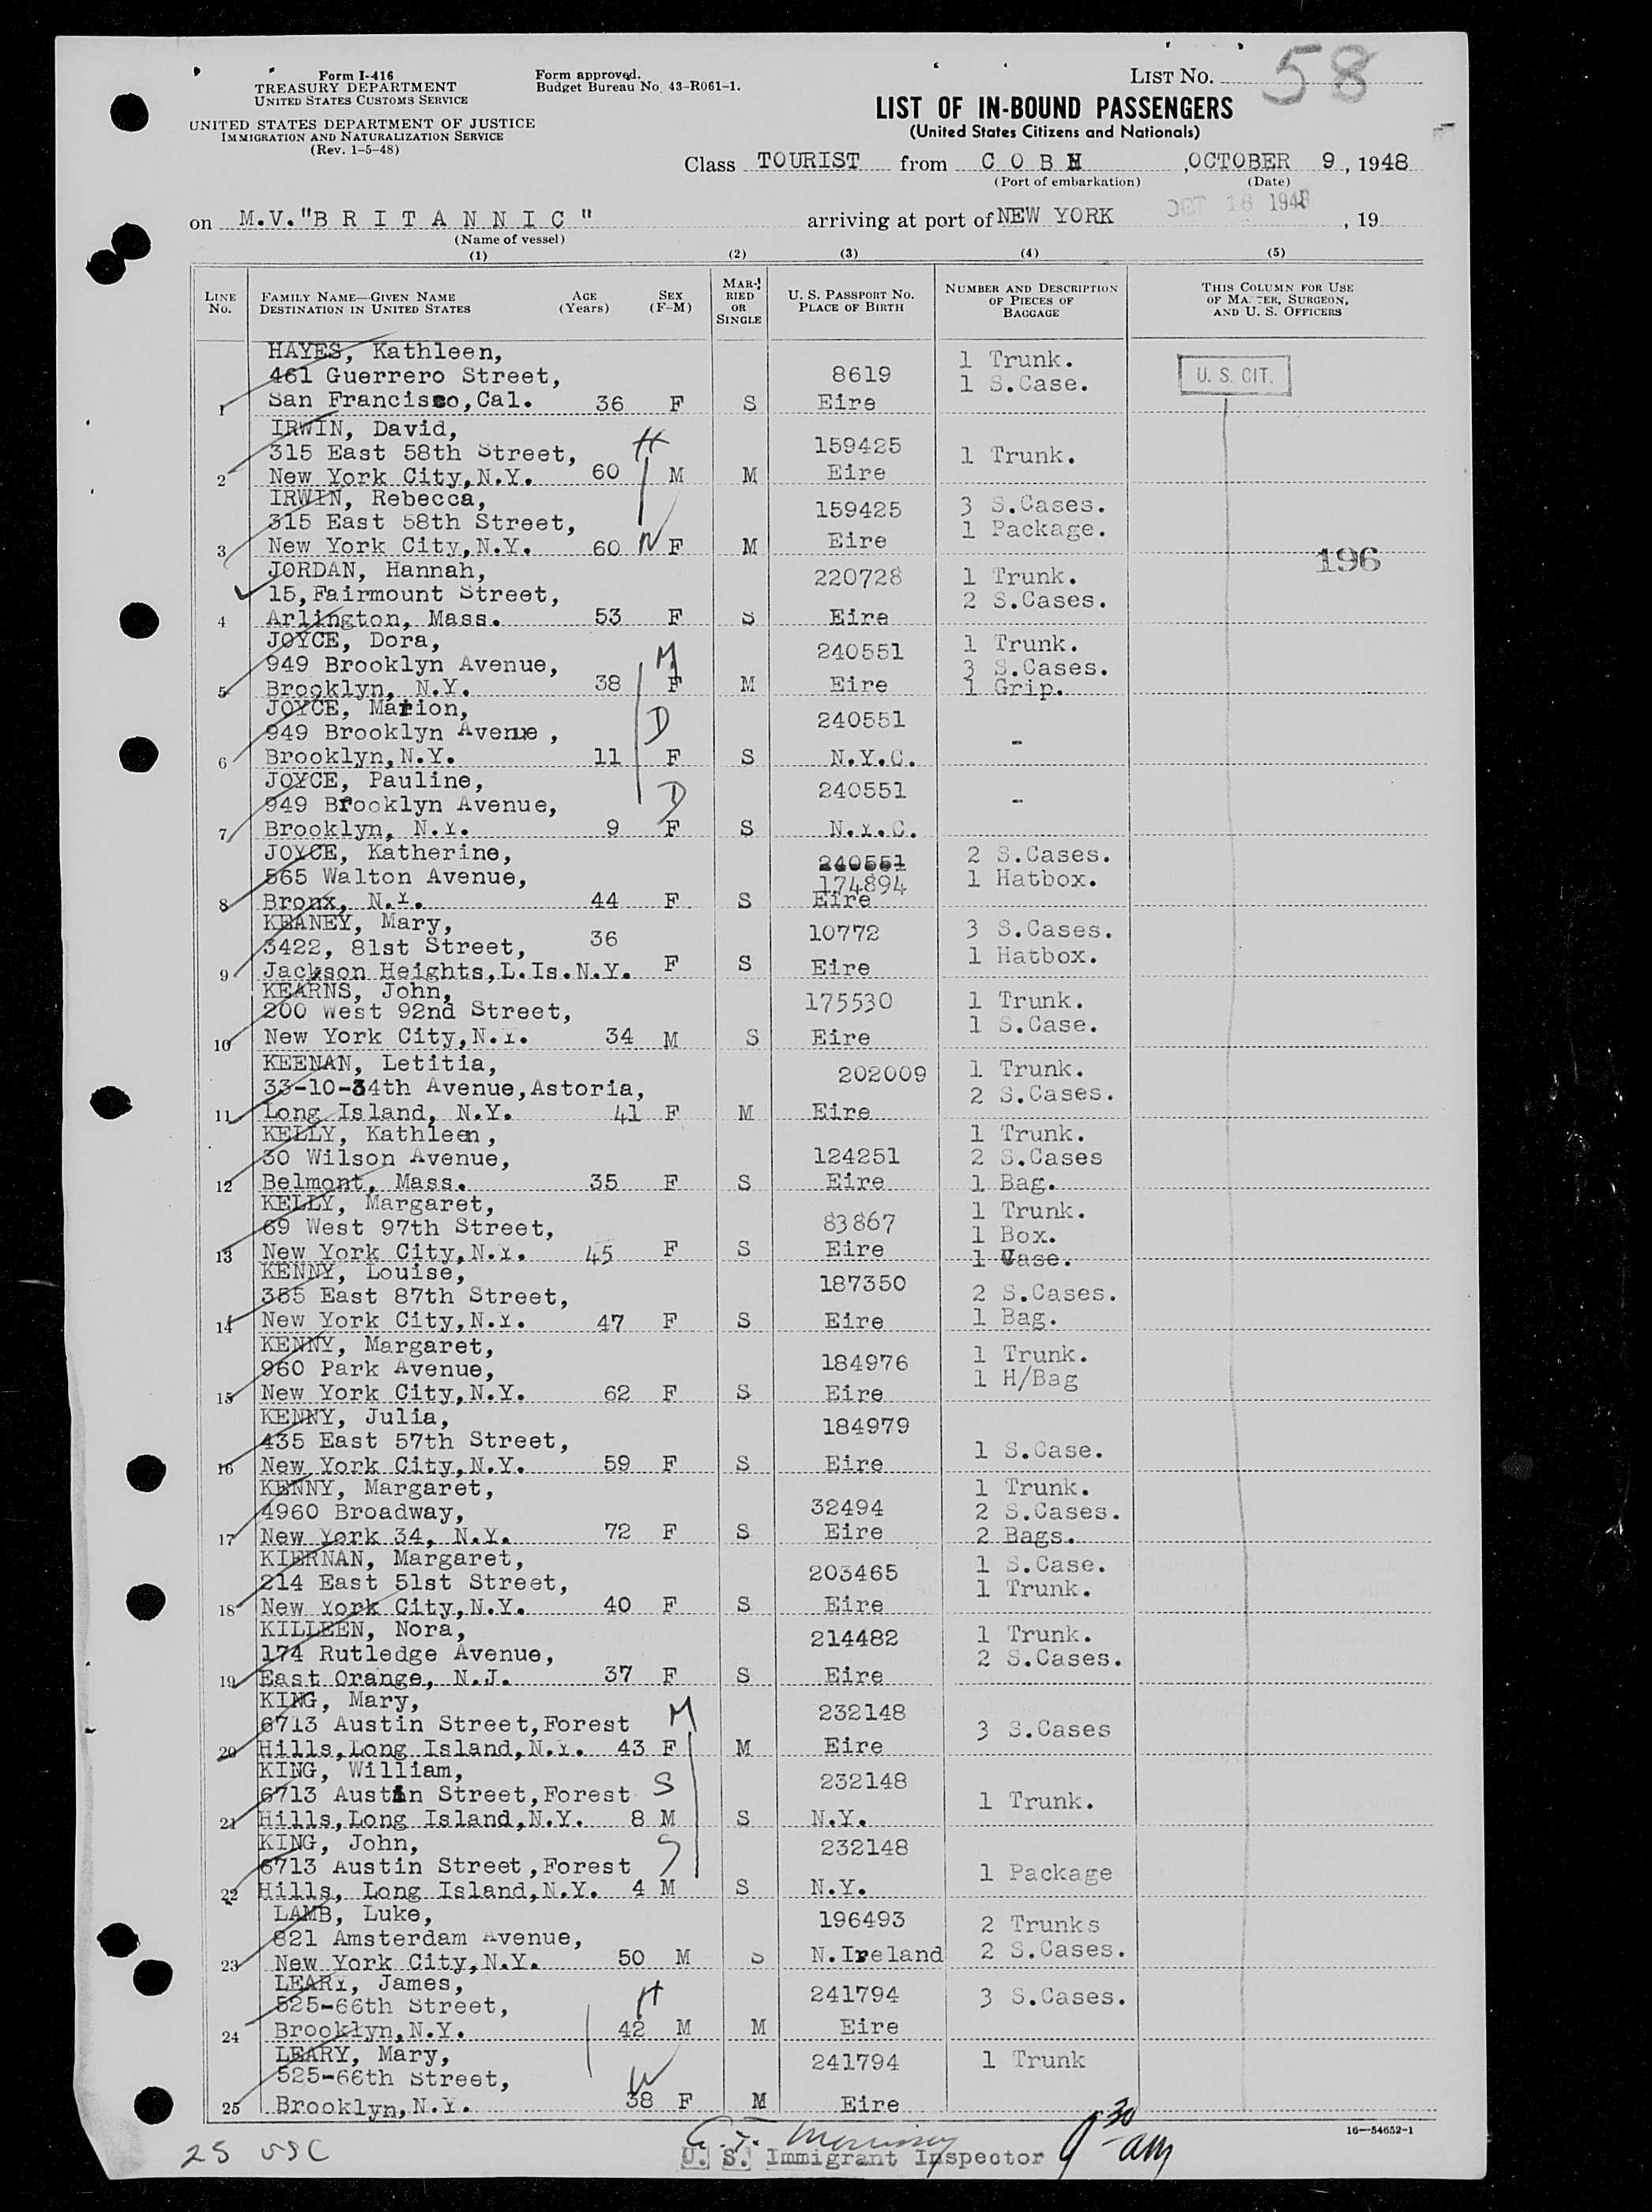 Form I-416
TREASURY DEPARTMENT
UNITED STATES CUSTOMS SERVICE
UNITED STATES DEPARTMENT OF JUSTICE
IMMIGRATION AND NATURALIZATION SERVICE
(Rev. 1-5-48)
Form approved.
Budget Bureau No. 43-R061-1.
LIST No. 58
LIST OF IN-BOUND PASSENGERS
(United States Citizens and Nationals)
Class TOURIST from C O B H ,OCTOBER 9, 1948
(Port of embarkation) (Date)
on M.V."B R I T A N N I C" arriving at port of NEW YORK OCT 16 1948, 19
(Name of vessel)
(1) (2) (3) (4) (5)
LINE No. FAMILY NAME—GIVEN NAME DESTINATION IN UNITED STATES AGE (Years) SEX (F-M) MARRIED OR SINGLE U. S. PASSPORT No. PLACE OF BIRTH NUMBER AND DESCRIPTION OF PIECES OF BAGGAGE THIS COLUMN FOR USE OF MASTER, SURGEON, AND U. S. OFFICERS
HAYES, Kathleen, 1 Trunk.
461 Guerrero Street, 8619 1 S.Case. U. S. CIT.
1 San Francisco,Cal. 36 F S Eire
IRWIN, David, H 159425
315 East 58th Street, 1 Trunk.
2 New York City,N.Y. 60 M M Eire
IRWIN, Rebecca, 159425 3 S.Cases.
315 East 58th Street, 1 Package.
3 New York City,N.Y. 60 W F M Eire
196
JORDAN, Hannah, 220728 1 Trunk.
15,Fairmount Street, 2 S.Cases.
4 Arlington, Mass. 53 F S Eire
JOYCE, Dora, M 240551 1 Trunk.
949 Brooklyn Avenue, 3 S.Cases.
5 Brooklyn, N.Y. 38 F M Eire 1 Grip.
JOYCE, Marion, D 240551
949 Brooklyn Avenue , -
6 Brooklyn,N.Y. 11 F S N.Y.C.
JOYCE, Pauline, D 240551
949 Brooklyn Avenue, -
7 Brooklyn, N.Y. 9 F S N.Y.C.
JOYCE, Katherine, 240551 2 S.Cases.
565 Walton Avenue, 174894 1 Hatbox.
8 Bronx, N.Y. 44 F S Eire
KEANEY, Mary, 10772 3 S.Cases.
3422, 81st Street, 36 1 Hatbox.
9 Jackson Heights,L.Is.N.Y. F S Eire
KEARNS, John, 175530 1 Trunk.
200 West 92nd Street, 1 S.Case.
10 New York City,N.Y. 34 M S Eire
KEENAN, Letitia, 202009 1 Trunk.
33-10-34th Avenue,Astoria, 2 S.Cases.
11 Long Island, N.Y. 41 F M Eire
KELLY, Kathleen, 1 Trunk.
30 Wilson Avenue, 124251 2 S.Cases
12 Belmont, Mass. 35 F S Eire 1 Bag.
KELLY, Margaret, 1 Trunk.
69 West 97th Street, 83867 1 Box.
13 New York City,N.Y. 45 F S Eire 1 Case.
KENNY, Louise, 187350
355 East 87th Street, 2 S.Cases.
14 New York City,N.Y. 47 F S Eire 1 Bag.
KENNY, Margaret, 184976 1 Trunk.
960 Park Avenue, 1 H/Bag
15 New York City,N.Y. 62 F S Eire
KENNY, Julia, 184979
435 East 57th Street, 1 S.Case.
16 New York City,N.Y. 59 F S Eire
KENNY, Margaret, 1 Trunk.
4960 Broadway, 32494 2 S.Cases.
17 New York 34, N.Y. 72 F S Eire 2 Bags.
KIERNAN, Margaret, 203465 1 S.Case.
214 East 51st Street, 1 Trunk.
18 New York City,N.Y. 40 F S Eire
KILLEEN, Nora, 214482 1 Trunk.
174 Rutledge Avenue, 2 S.Cases.
19 East Orange, N.J. 37 F S Eire
KING, Mary, M 232148
6713 Austin Street,Forest 3 S.Cases
20 Hills,Long Island,N.Y. 43 F M Eire
KING, William, S 232148
6713 Austin Street,Forest 1 Trunk.
21 Hills,Long Island,N.Y. 8 M S N.Y.
KING, John, S 232148
6713 Austin Street,Forest 1 Package
22 Hills, Long Island,N.Y. 4 M S N.Y.
LAMB, Luke, 196493 2 Trunks
821 Amsterdam Avenue, 2 S.Cases.
23 New York City,N.Y. 50 M S N.Ireland
LEARY, James, H 241794 3 S.Cases.
525-66th Street,
24 Brooklyn,N.Y. 42 M M Eire
LEARY, Mary, 241794 1 Trunk
525-66th Street, W
25 Brooklyn,N.Y. 38 F M Eire
16—54652-1
25 USC
U. S. Immigrant Inspector 9 30 am